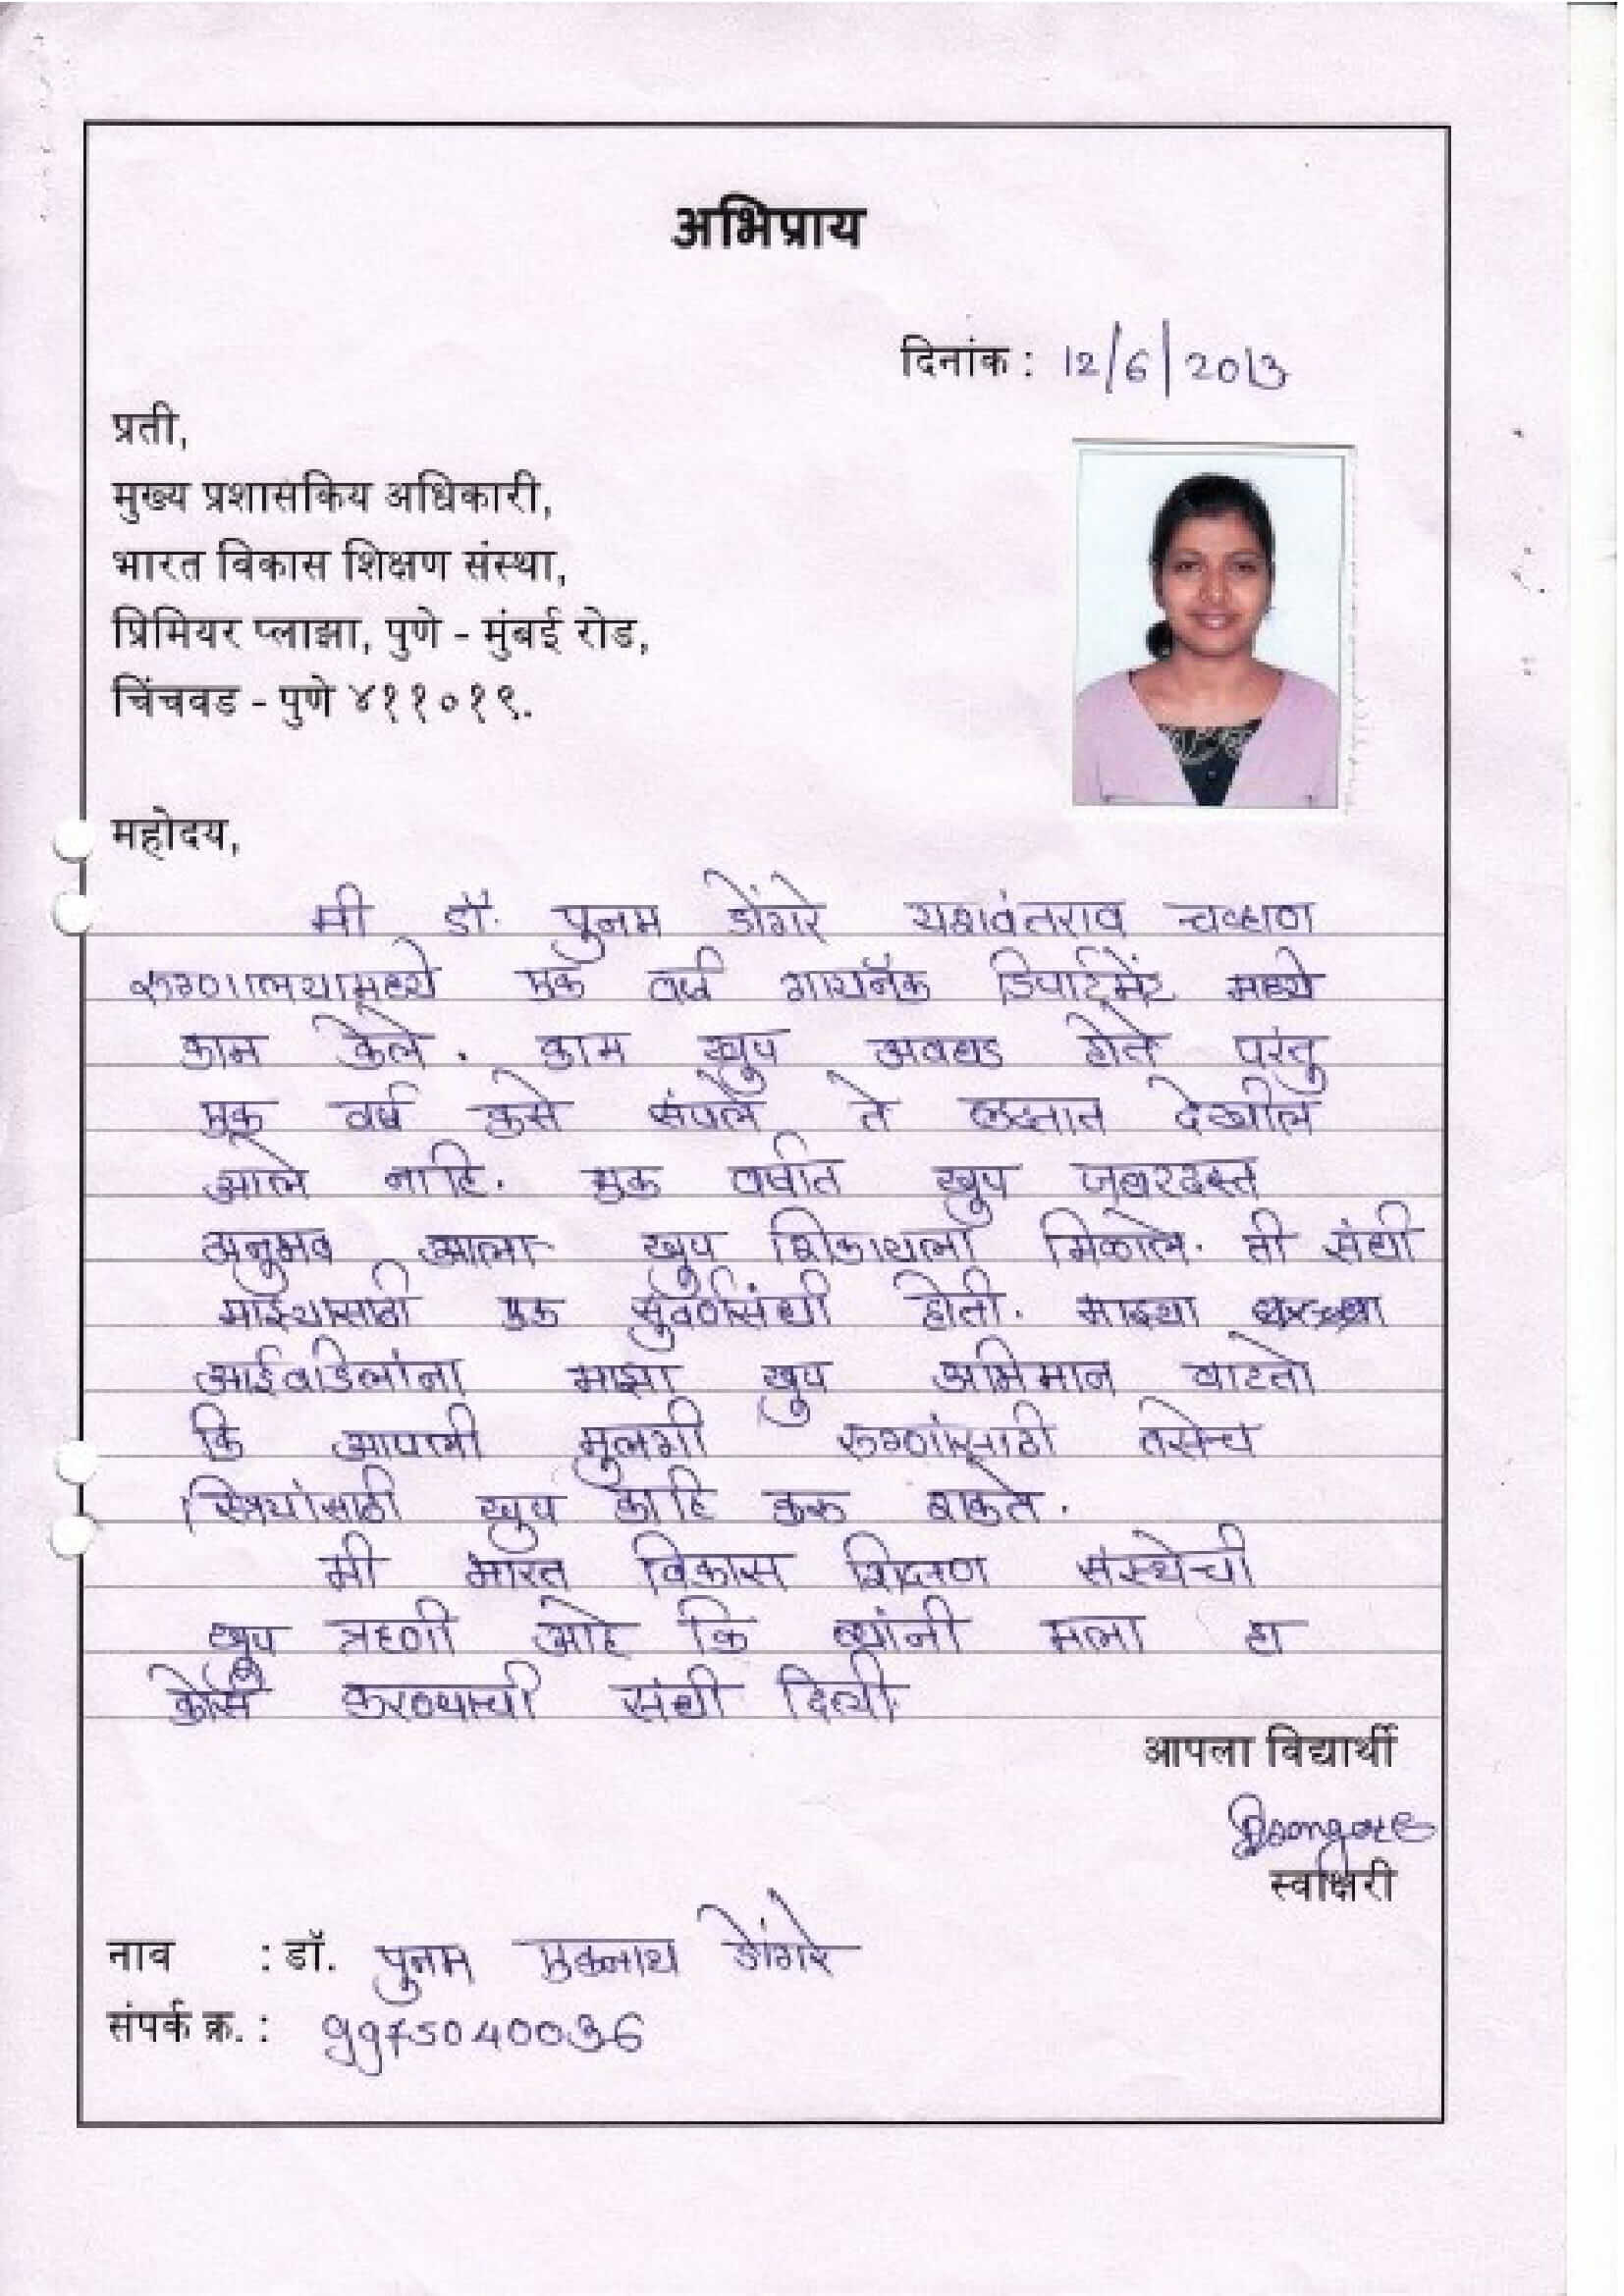 अभिप्राय
दिनांक : 12/6/2013
प्रती,
मुख्य प्रशासकिय अधिकारी,
भारत विकास शिक्षण संस्था,
प्रिमियर प्लाझा, पुणे - मुंबई रोड,
चिंचवड - पुणे ४११०१९.
महोदय,
मी डॉ. पुनम डोंगरे यशवंतराव चव्हाण
रुग्णालयामध्ये एक वर्ष गायनॅक डिपार्टमेंट मध्ये
काम केले. काम खुप अवघड होते परंतु
एक वर्ष कसे संपले ते लक्षात देखील
आले नाहि. एक वर्षात खुप जबरदस्त
अनुभव आला खुप शिकायला मिळाले. ती संधी
माझ्यासाठी एक सुवर्णसंधी होती. माझ्या
आईवडिलांना माझा खुप अभिमान वाटतो
कि आपली मुलगी रुग्णांसाठी तसेच
स्त्रियांसाठी खुप काहि करु शकते.
मी भारत विकास शिक्षण संस्थेची
खुप ऋणी आहे कि त्यांनी मला हा
कोर्स करण्याची संधी दिली.
आपला विद्यार्थी
Dongare
स्वाक्षिरी
नाव : डॉ. पुनम एकनाथ डोंगरे
संपर्क क्र. : 9975040036